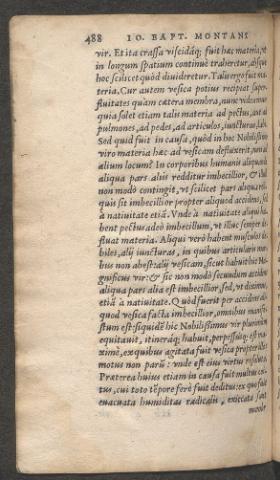 488 IO. BAPT. MONTANI
vir. Et ita crassa viscidáq; fuit hæc materia, vt
in longum spatium continuè traheretur, absq;
hoc scilicet quòd diuideretur. Talis ergo fuit ma-
teria. Cur autem vesica potius recipiat super-
fluitates quàm cætera membra, nunc videamus
quia solet etiam talis materia ad pectus, aut ad
pulmones, ad pedes, ad articulos, iuncturas, &c.
Sed quid fuit in causa, quòd in hoc Nobilissimo
viro materia hæc ad vesicam defluxerit, non ad
alium locum? In corporibus humanis aliquando
aliqua pars aliis redditur imbecillior, & id
non modò contingit, vt scilicet pars aliqua reli-
quis sit imbecillior propter aliquod accidens, sed
à natiuitate etiã. Vnde à natiuitate aliqui ha-
bent pectus adeò imbecillum, vt illuc semper de-
fluat materia. Aliqui verò habent musculos de-
biles, alij iuncturas, in quibus articulari mor-
bus non abest: alij vesicam, sicut habuit hic Ma-
gnificus vir: & sic non modò secundum accidens
aliqua pars alia est imbecillior, sed, vt diximus,
etiã à natiuitate. Quòd fuerit per accidens ali-
quod vesica facta imbecillior, omnibus manife-
stum est: siquidẽ hic Nobilissimus vir plurimùm
equitauit, itineráq; habuit, perpessusq; est ma-
ximè, ex quibus agitata fuit vesica propter illos
motus non parũ: vnde est eius virtus resoluta.
Præterea huius etiam in causa fuit multus coi-
tus, cui toto tẽpore ferè fuit deditus: ex quo fuit
euacuata humiditas radicalis, exiccata fuit